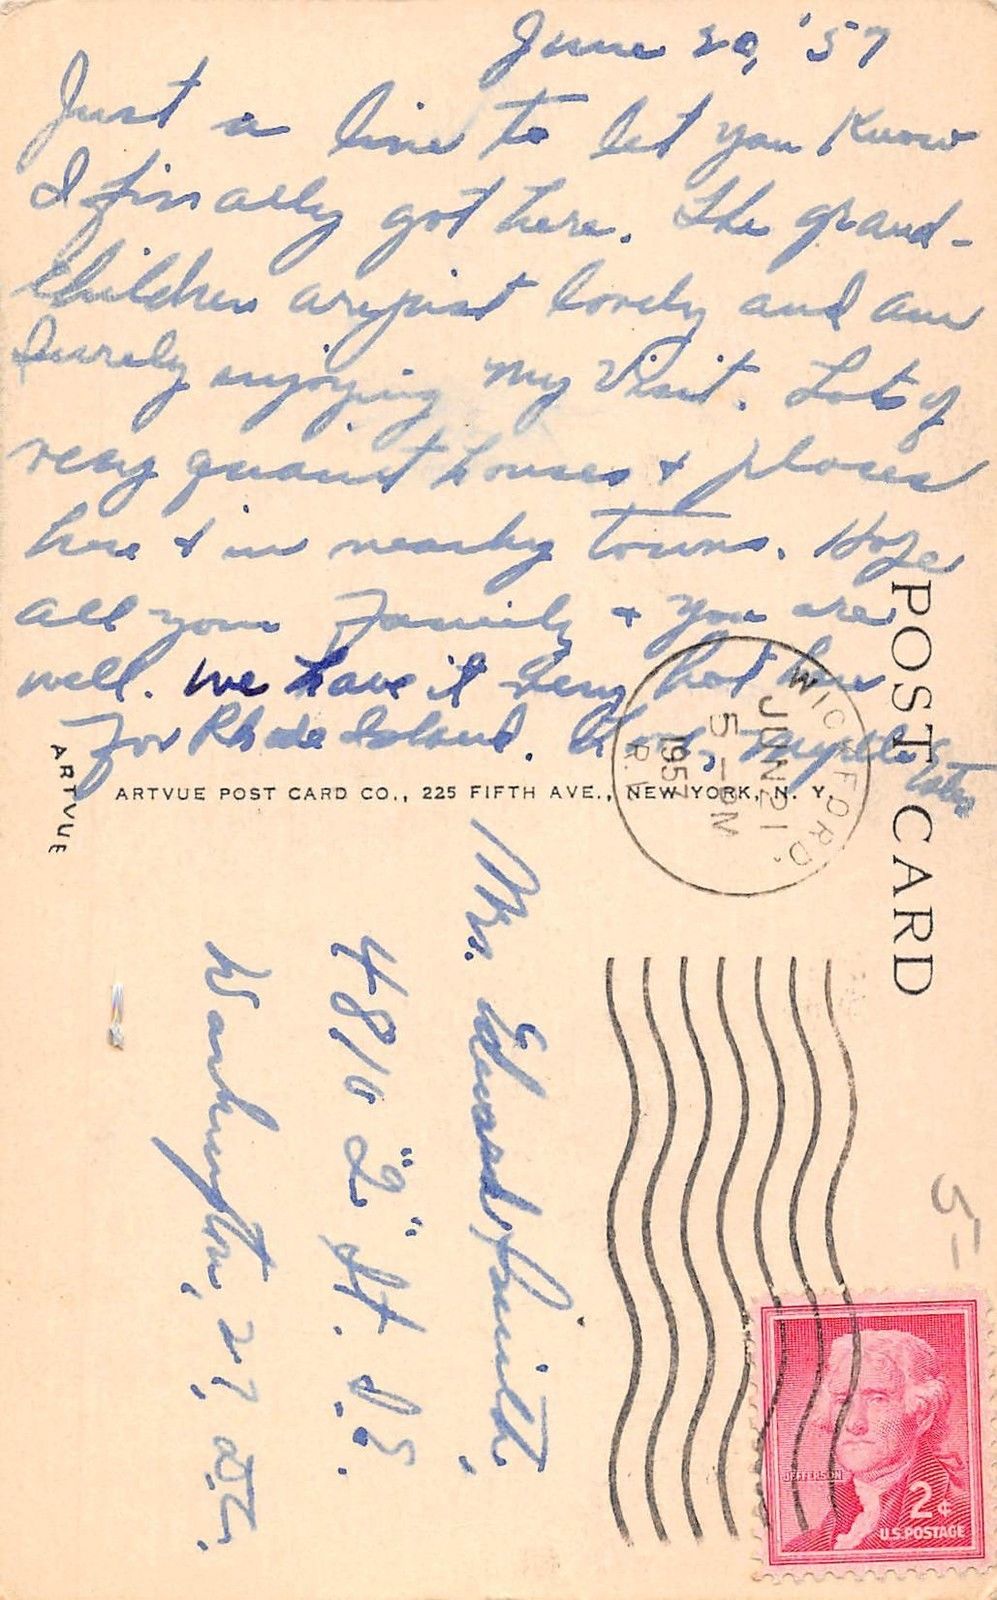 June 20, '57
Just a line to let you know
I finally got here. The grand-
children are just lovely and am
surely enjoying my visit. Lots of
very quaint houses + places
here + in nearby towns. Hope
all your family + you are
well. We have it very hot here
for Rhode Island. Love, Myrtle
POST CARD
ARTVUE
ARTVUE POST CARD CO., 225 FIFTH AVE., NEW YORK, N. Y.
WICKFORD,
JUN 21
5 - PM
1957
R. I.
Mrs. Edward Smith
4810 "2" St. S.E.
Washington, 27, D.C.
5-
JEFFERSON
2¢
U.S. POSTAGE